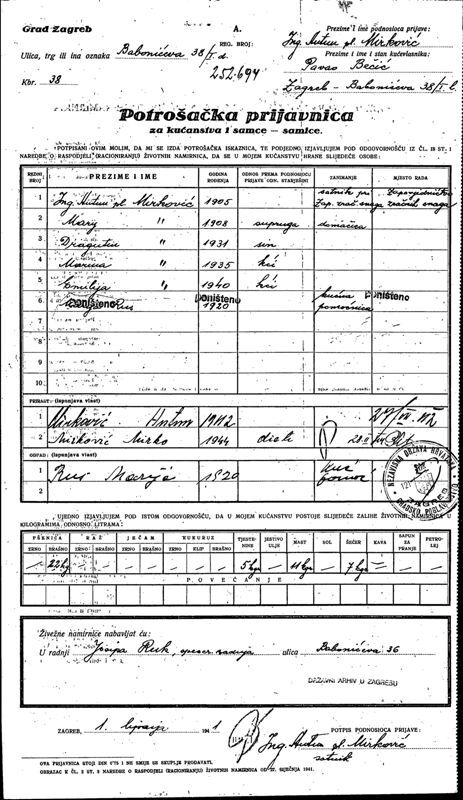 Grad Zagreb
A.
Prezime i ime podnosioca prijave:
REG. BROJ:
Ing. Antun pl. Mirković
Ulica, trg ili ina oznaka Babonićeva 38/I d.
252.694
Prezime i ime stan kućevlasnika:
Pavao Bečić
Kbr. 38
Zagreb - Babonićeva 38/I
Potrošačka prijavnica
za kućanstva i samce – samice.
POTPISANI OVIM MOLIM, DA MI SE IZDA POTROŠAČKA ISKAZNICA, TE PODJEDNO IZJAVLJUJEM POD ODGOVORNOŠĆU IZ ČL. 18 ST. 1
NAREDBE O RASPODJELI (RACIONIRANJU) ŽIVOTNIH NAMIRNICA, DA SE U MOJEM KUĆANSTVU HRANE SLIJEDEĆE OSOBE:
REDNI BROJ PREZIME I IME GODINA ROĐENJA ODNOS PREMA PODNOSIOCU PRIJAVE ODN. STARJEŠINI ZANIMANJE MJESTO RADA
1 Ing. Antun pl. Mirković 1905 satnik pri Zap. zrač. snaga Zapovjedničtvo zračnih snaga
2 Mary " 1908 supruga domaćica
3 Dragutin " 1931 sin
4 Marina " 1935 kći
5 Emilija " 1940 kći
6 Poništeno Rus Poništeno 1920 kućna pomoćnica Poništeno
7
8
9
10
PRIRAST: (ispunjava vlast)
1 Mirković Antun 1942
2 Mirković Mirko 1944
OTPAD: (ispunjava vlast)
1 Rus Marija 1920 kuć. pomoć.
2
NEZAVISNA DRŽAVA HRVATSKA
UJEDNO IZJAVLJUJEM POD ISTOM ODGOVORNOŠĆU, DA U MOJEM KUĆANSTVU POSTOJE SLIJEDEĆE ZALIHE ŽIVOTNIH NAMIRNICA U
KILOGRAMIMA, ODNOSNO LITRAMA:
PŠENICA RAŽ JEČAM KUKURUZ TJESTENINE JESTIVO ULJE MAST SOL ŠEĆER KAVA SAPUN ZA PRANJE PETROLEJ
ZRNO BRAŠNO ZRNO BRAŠNO ZRNO BRAŠNO ZRNO KLIP BRAŠNO
22 kg 5 kg 4 kg 7 kg
POVEĆANJE
Živežne namirnice nabavljat ću:
U radnji Josipa Ruk, specer. radnja ulica Babonićeva 36
DRŽAVNI ARHIV U ZAGREBU
ZAGREB, 1. lipnja 1941
POTPIS PODNOSIOCA PRIJAVE:
Ing. Antun pl. Mirković
satnik
OVA PRIJAVNICA STOJI DIN 0'75 I NE SMIJE SE SKUPLJE PRODAVATI.
OBRAZAC K ČL. 2 ST. 3 NAREDBE O RASPODJELI (RACIONIRANJU) ŽIVOTNIH NAMIRNICA OD SIJEČNJA 1941.